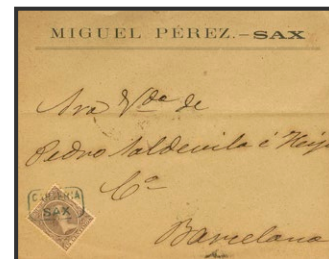 MIGUEL PÉREZ.–SAX
Sra Vda de
Pedro Saldevila é Hijo
Cª
Barcelona
CARTERIA
SAX